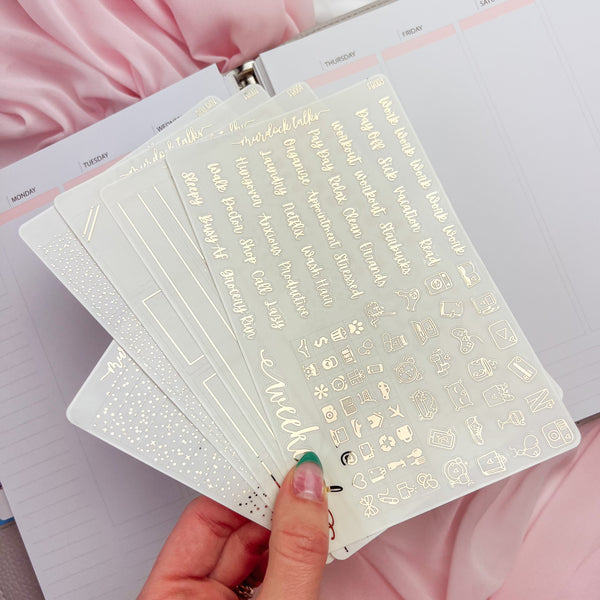 MONDAY
TUESDAY
THURSDAY
FRIDAY
murdock talks
murdock talks
Work Work Work Work Work
Day Off Sick Vacation Read
Workout Workout Starbucks
Pay Day Relax Clean Errands
Organize Appointment Stressed
Laundry Netflix Wash Hair
Hungover Anxious Productive
Walk Doctor Shop Call Lazy
Sleepy Busy AF Grocery Run